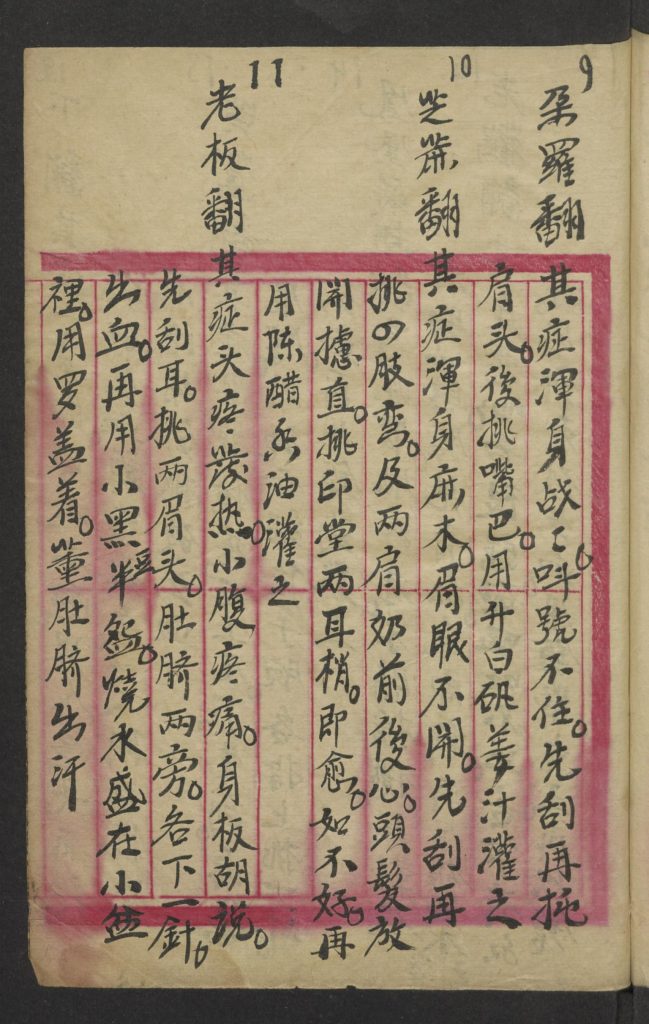 9
朶羅翻 其症渾身战〻。呌號不住。先刮再
肩头。後挑嘴巴。用升白矾姜汁灌之
10
翻 其症渾身麻木。眉眼不開。先刮再
挑四肢弯。及两肩奶前後心。頭髮放
開攄直。挑印堂两耳梢。即愈。如不好。再
用陈醋香油灌之
11
老板翻 其症头疼發热。小腹疼痛。身板胡說。
先刮耳。挑两眉头。肚脐两旁。各下一針。
出血。再用小黑豆半盌。燒水盛在小盆
裡。用罗盖着。薰肚脐出汗